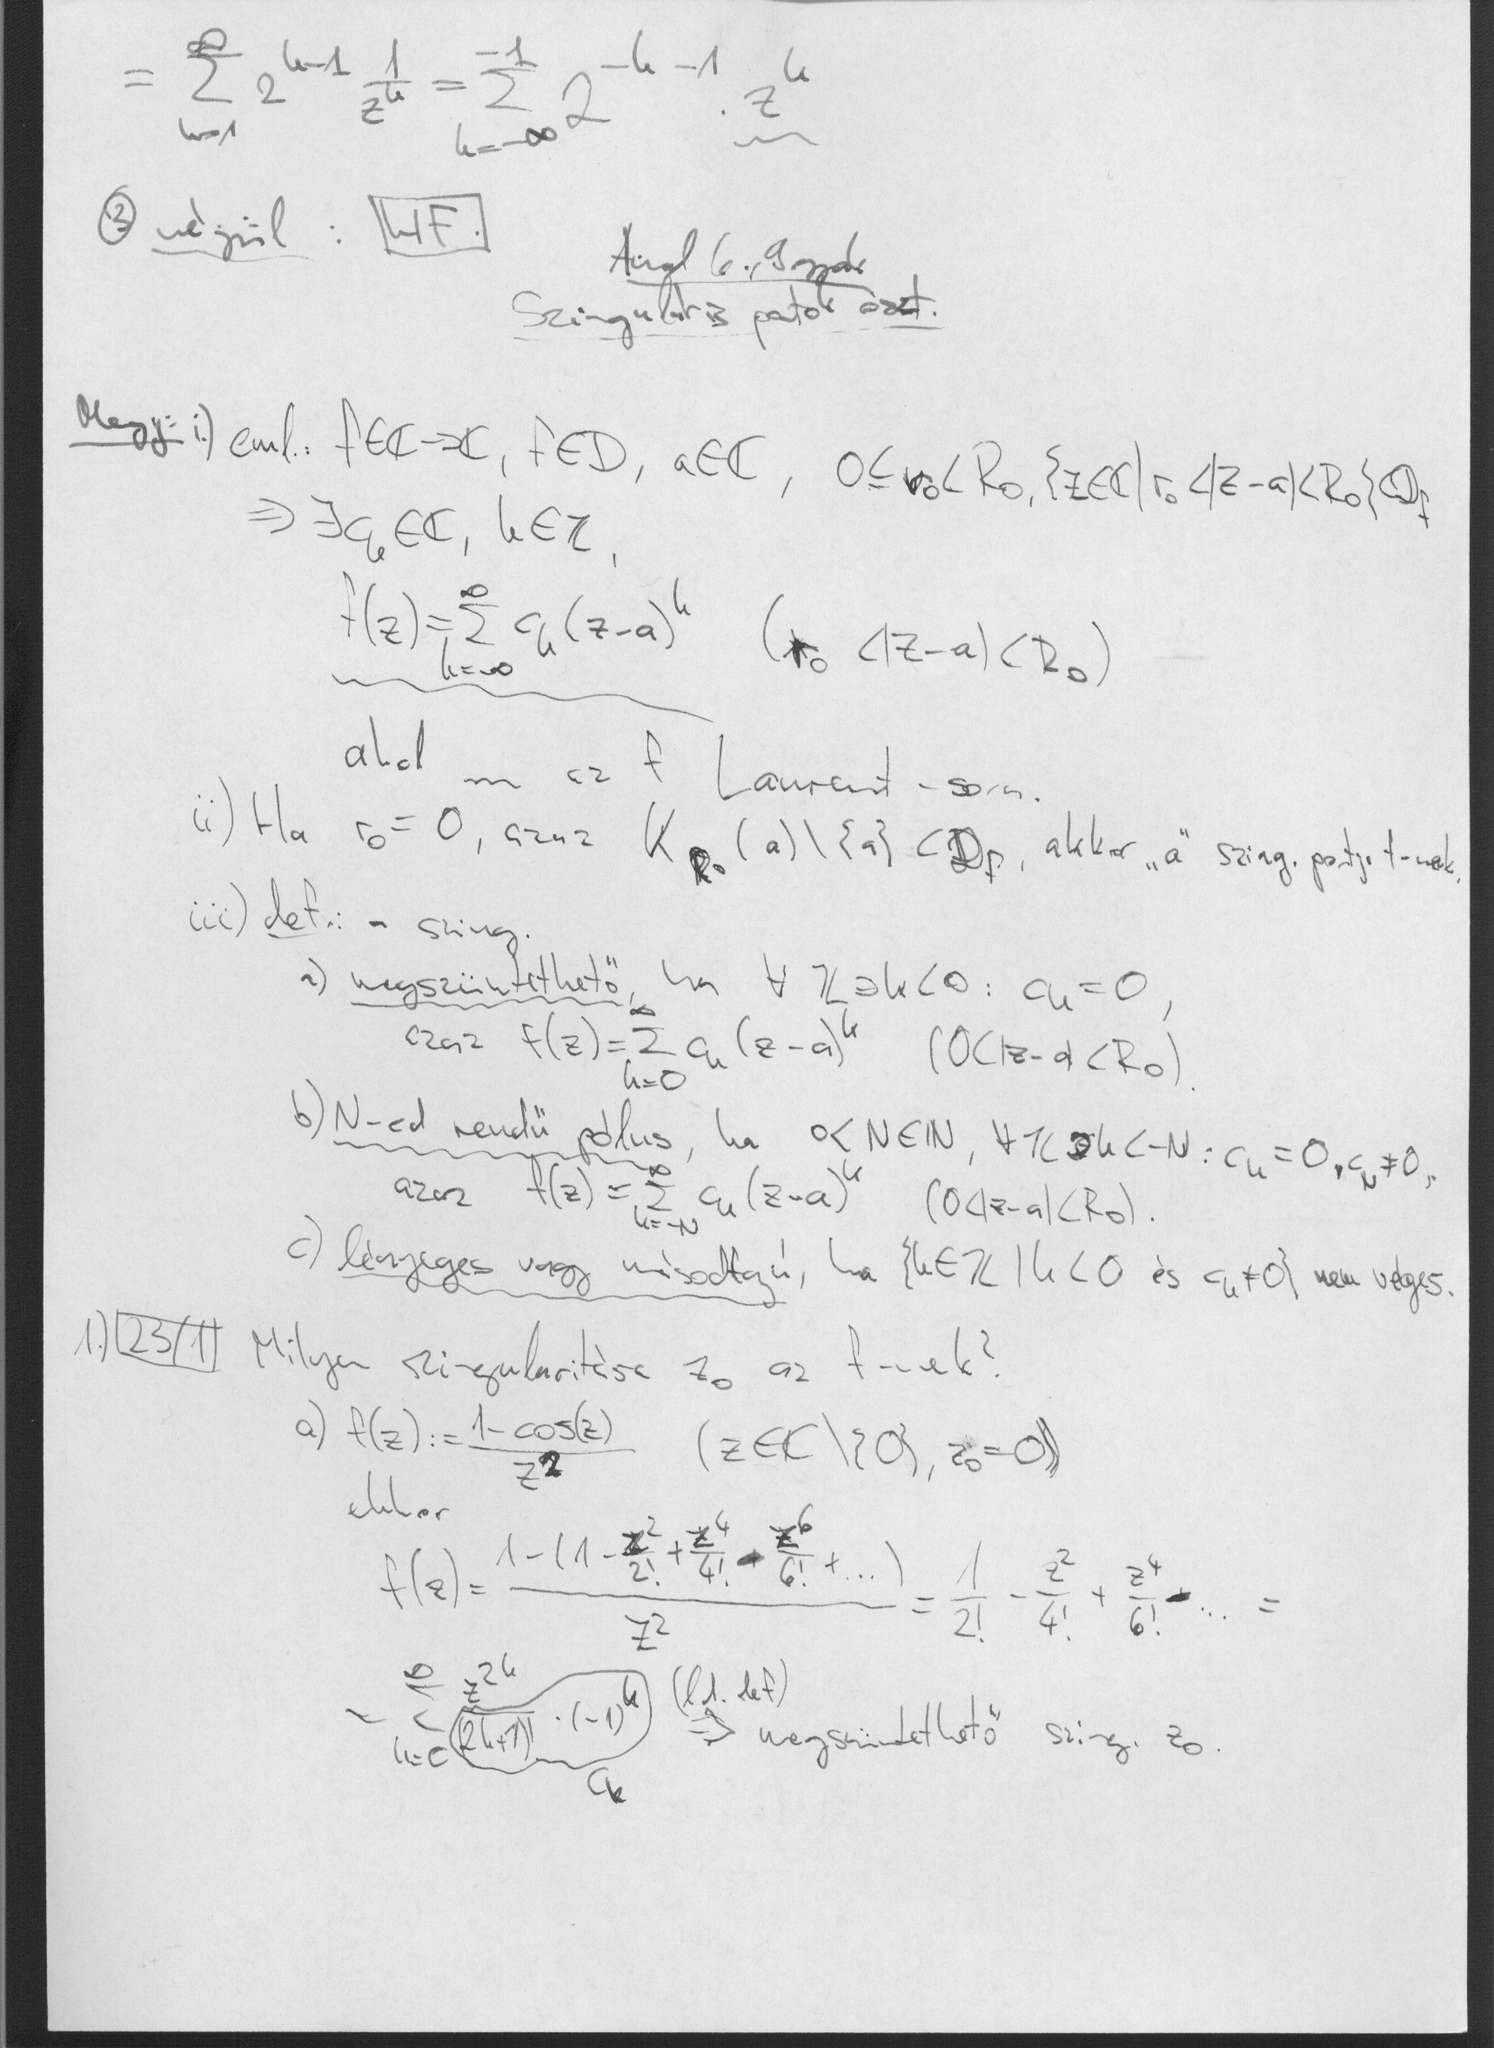 = ∑_{k=1}^{∞} 2^{k-1} 1/z^k = ∑_{k=-∞}^{-1} 2^{-k-1} · z^k
③ végül : HF.
Anal 6., 9 gyak
Szinguláris pontok oszt.
Megj: i.) eml.: f∈ℂ→ℂ, f∈D, a∈ℂ, 0≤r₀<R₀, {z∈ℂ | r₀<|z-a|<R₀}⊂D_f
⇒ ∃c_k∈ℂ, k∈ℤ,
f(z)=∑_{k=-∞}^{∞} c_k(z-a)^k (r₀<|z-a|<R₀)
ahol ~~ az f Laurent-sora.
ii) Ha r₀=0, azaz K_{R₀}(a)\{a}⊂D_f, akkor „a" szing. pontja f-nek.
iii) def.: a szing.
a) megszüntethető, ha ∀ ℤ∋k<0: c_k=0,
azaz f(z)=∑_{k=0}^{∞} c_k(z-a)^k (0<|z-a|<R₀).
b) N-ed rendű pólus, ha 0<N∈ℕ, ∀ℤ∋k<-N: c_k=0, c_N≠0,
azaz f(z)=∑_{k=-N}^{∞} c_k(z-a)^k (0<|z-a|<R₀).
c) lényeges vagy másodfajú, ha {k∈ℤ | k<0 és c_k≠0} nem véges.
1.) 23/1 Milyen szingularitása z₀ az f-nek?
a) f(z):=(1-cos(z))/z² (z∈ℂ\{0}, z₀=0)
ekkor
f(z)=(1-(1-z²/2!+z⁴/4!-z⁶/6!+...))/z² = 1/2! - z²/4! + z⁴/6! - ... =
= ∑_{k=0}^{∞} z^{2k}/(2k+2)! · (-1)^k (ld. def) ⇒ megszüntethető szing. z₀.
c_k